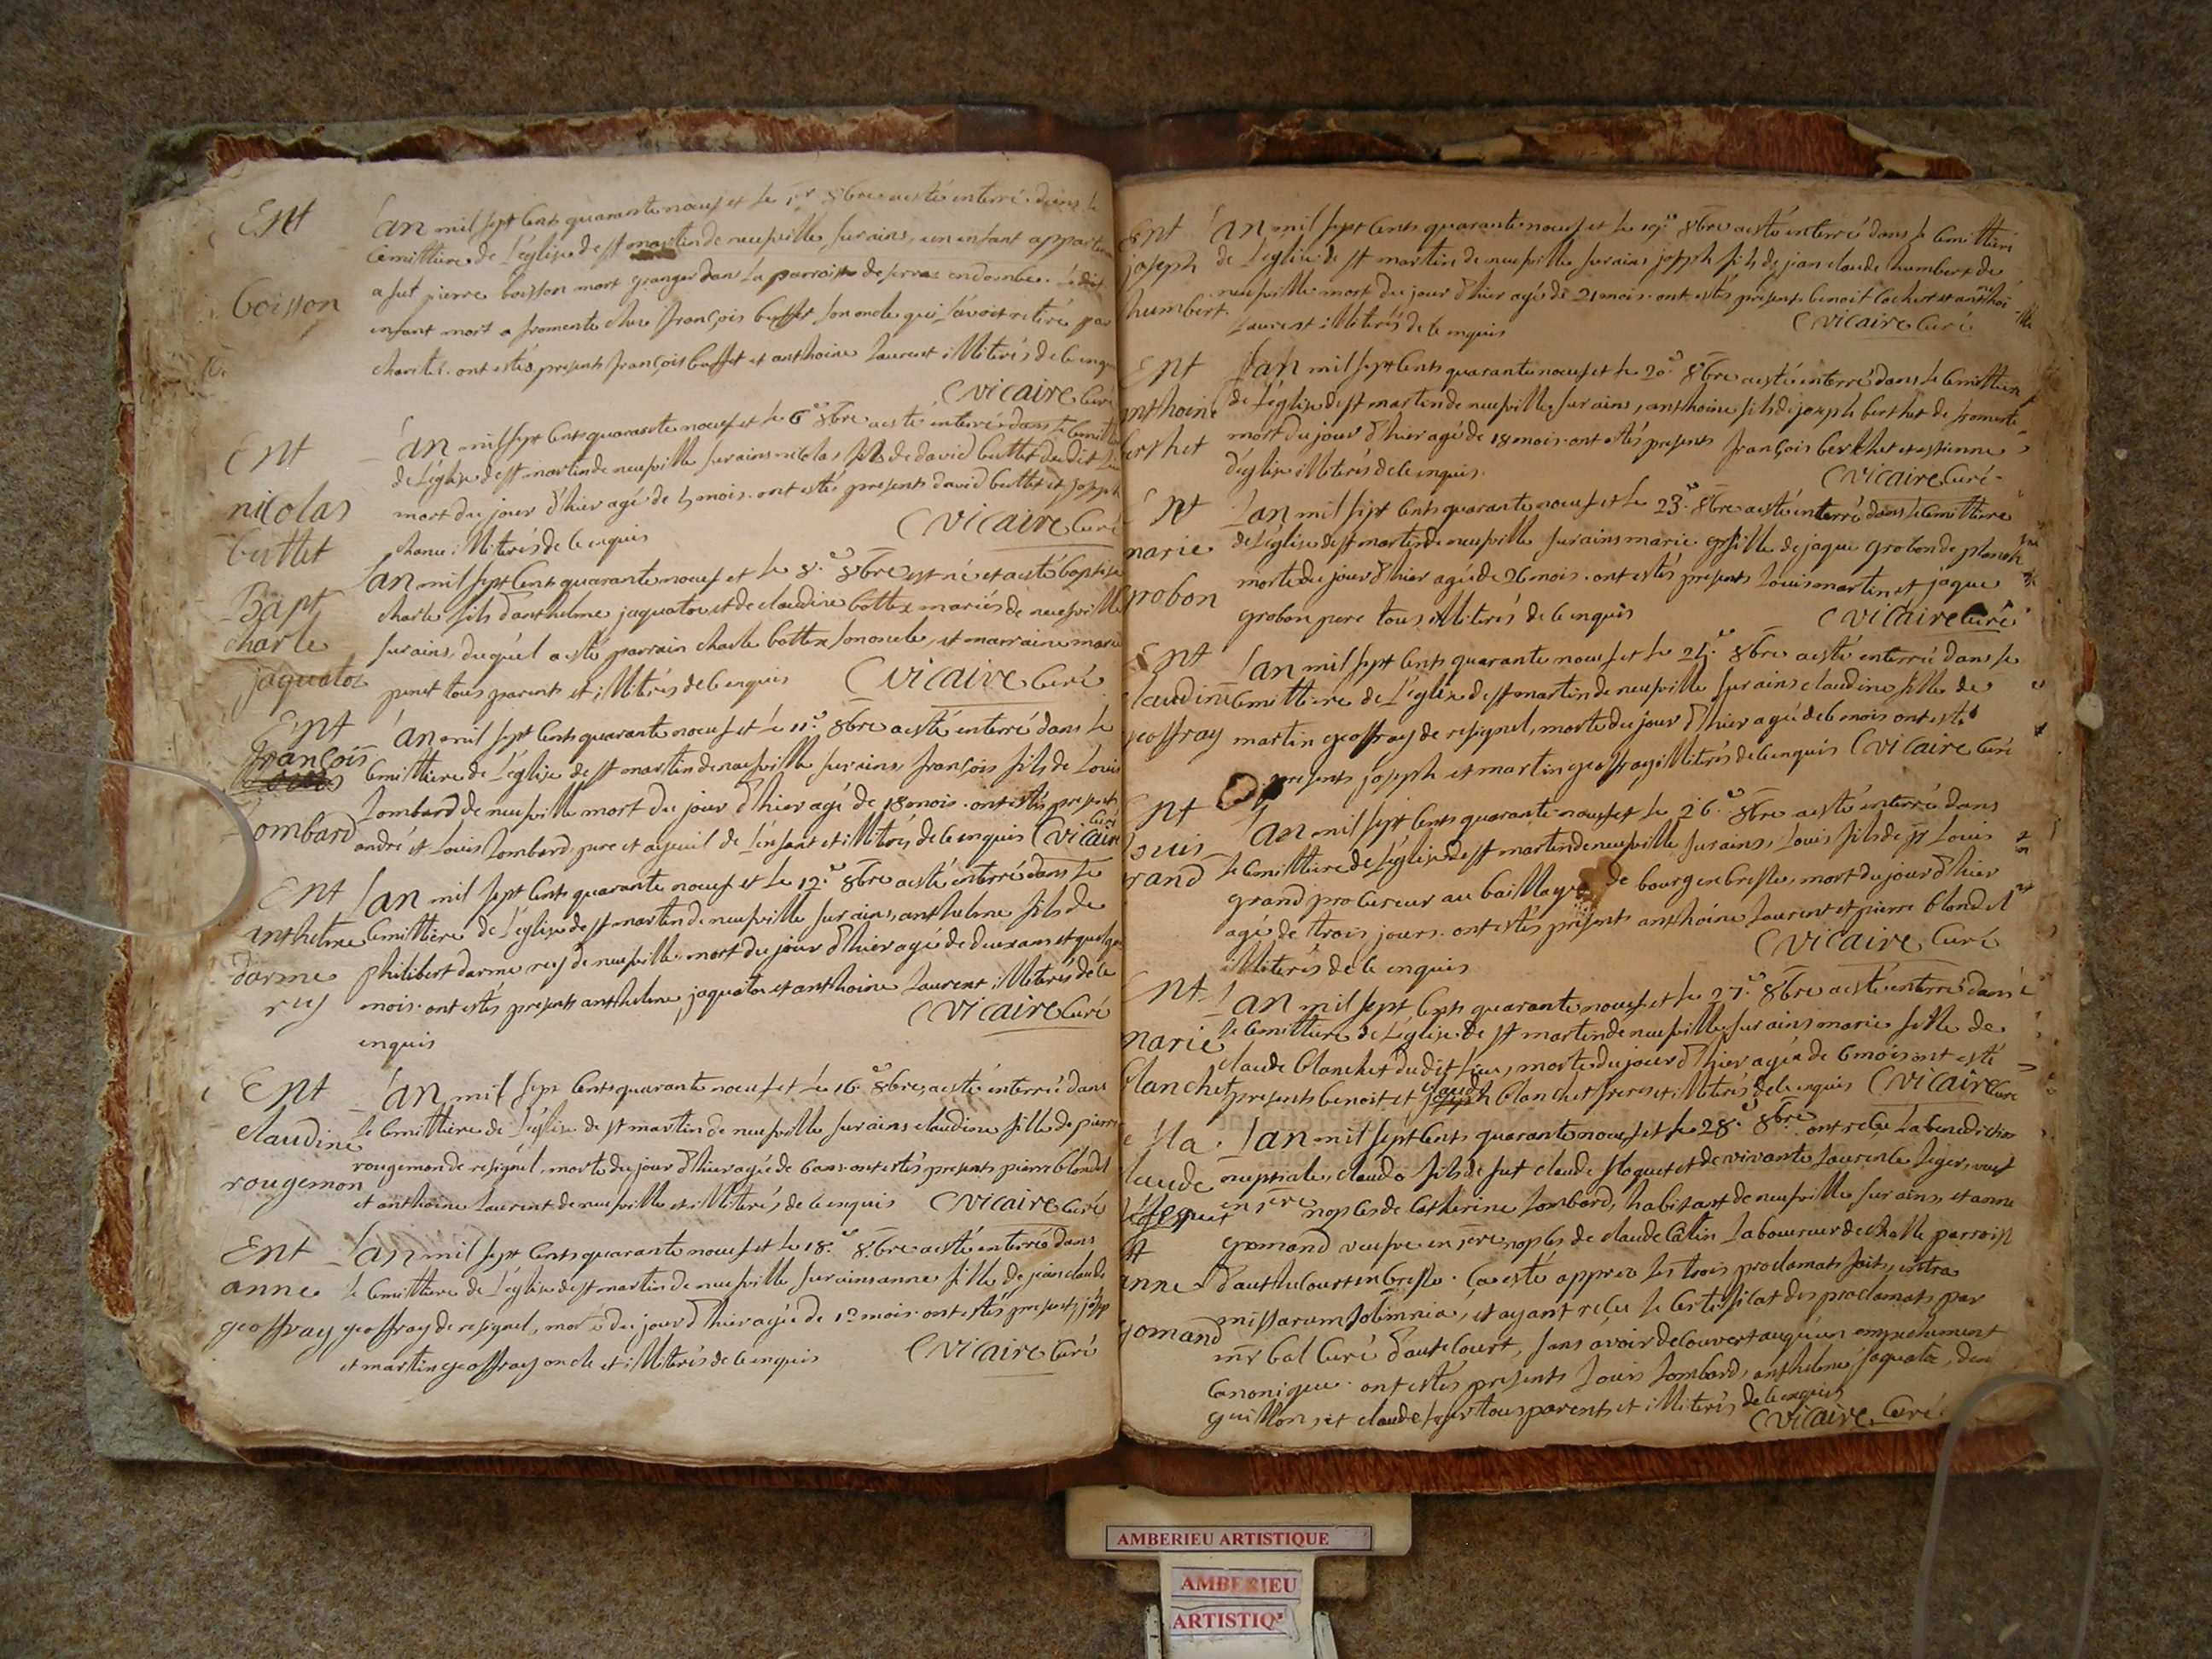 Ent
boisson
L'an mil sept cents quarante noeuf et le 1er 8bre aesté interré dans le
cemittiere de l'église de st martin de neufville sur ains, un enfant
a fut pierre boisson mort granger dans la parroisse de
enfant mort a fromente ches françois buffet son oncle qui l'avoit retiré par
charité. ont estés presents françois buffet et anthoine laurent illiterés de ce enquis
C vicaire Curé
Ent
nicolas
buttet
L'an mil sept cents quarante noeuf et le 6e 8bre aesté interré dans le
de l'église de st martin de neufville sur ains nicolas fils de david buttet du dit lieu
mort du jour d'hier agé de 5 mois. ont estés presents david buttet et joseph
illiterés de ce enquis
C vicaire Curé
Bapt
charle
jaquatot
L'an mil sept cents quarante noeuf et le 8e 8bre est né et aesté baptisé
charle fils d'anthelme jaquatot et de claudine bottex mariés de neufville
sur ains, duquél aesté parrain charle bottex son oncle, et marraine marie
tous parents et illiterés de ce enquis
C vicaire Curé
Ent
françois
lombard
L'an mil sept cents quarante noeuf et le 11e 8bre aesté interré dans le
cemittiere de l'église de st martin de neufville sur ains, françois fils de louis
lombard de neufville mort du jour d'hier agé de 18 mois. ont estés presents
andré et louis lombard, pere et ayeuil de l'enfant et illiterés de ce enquis C vicaire Curé
Ent
anthelme
darme
rey
L'an mil sept cents quarante noeuf et le 12e 8bre aesté interré dans le
cemittiere de l'église de st martin de neufville sur ains, anthelme fils de
philibert darme rey de neufville. mort du jour d'hier agé de deux ans et quelques
mois. ont estés presents anthelme jaquatot et anthoine laurent illiterés de ce
enquis
C vicaire Curé
Ent
claudine
rougemon
L'an mil sept cents quarante noeuf et le 16e 8bre, aesté interré dans
le cemittiere de l'église de st martin de neufville sur ains claudine fille de pierre
rougemon de resignel, morte du jour d'hier agée de 6 ans. ont estés presents pierre blondel
et anthoine laurent de neufville et illiterés de ce enquis C vicaire Curé
Ent
anne
geoffray
L'an mil sept cents quarante noeuf et le 18e 8bre aesté interré dans
le cemittiere de l'église de st martin de neufville sur ains anne fille de jean claude
geoffray de resignel, morte du jour d'hier agée de mois. ont estés presents joseph
et martin geoffray oncle et illiterés de ce enquis
C vicaire Curé
Ent
joseph
humbert
L'an mil sept cents quarante noeuf et le 19e 8bre aesté interré dans le cemittiere
de l'église de st martin de neufville sur ains joseph fils de jean claude humbert de
neufville mort du jour d'hier agé de 21 mois. ont estés presents benoit cochet et anthoine
laurent illiterés de ce enquis
C vicaire Curé
Ent
anthoine
berthet
L'an mil sept cents quarante noeuf et le 20e 8bre aesté interré dans le cemittiere
de l'église de st martin de neufville sur ains, anthoine fils de joseph berthet de fromente
mort du jour d'hier agé de 18 mois. ont estés presents françois berthet et estienne
illiterés de ce enquis.
C vicaire Curé
Ent
marie
grobon
L'an mil sept cents quarante noeuf et le 23e 8bre aesté interré dans le cemittiere
de l'église de st martin de neufville sur ains marie fille de jaque grobon de
morte du jour d'hier agée de 26 mois. ont estés presents louis martin, et jaque
grobon pere tous illiterés de ce enquis
C vicaire Curé
Ent
claudine
geoffray
L'an mil sept cents quarante noeuf et le 24e 8bre aesté interré dans le
cemittiere de l'église de st martin de neufville sur ains claudine fille de
martin geoffray de resignel, morte du jour d'hier agée de 6 mois ont estés
presents joseph et martin geoffray illiterés de ce enquis C vicaire Curé
Ent
louis
grand
L'an mil sept cents quarante noeuf et le 26e 8bre aesté interré dans
le cemittiere de l'église de st martin de neufville sur ains, louis fils de sr louis
grand procureur au baillage de bourg en bresse, mort du jour d'hier
agé de trois jours. ont estés présents anthoine laurent et pierre blondel
illiterés de ce enquis
C vicaire Curé
Ent
marie
blanchet
L'an mil sept cents quarante noeuf et le 27e 8bre aesté interré dans
le cemittiere de l'église de st martin de neufville sur ains marie fille de
claude blanchet du dit lieu, morte du jour d'hier agée de 6 mois ont esté
presents benoit et claude blanchet freres et illiterés de ce enquis C vicaire Curé
claude
et
anne
gomand
L'an mil sept cents quarante noeuf et le 28e 8bre ont reçu la benediction
nuptiale, claude fils de fut claude et de vivante laurence leger, veuf
en 1ere nopces de catherine lombard, habitant de neufville sur ains, et anne
gomand veufve en 1ere nopces de claude laboureur de parroisse
d'authecourt en bresse. ça esté apprez les trois proclamats faits, intra
missarum solimnia, et ayant reçu le certificat des proclamats par
mr bal curé d'autecourt, sans avoir decouvert auqu'un empechement
canonique. ont estés presents louis lombard, anthelme jaquatot,
guillon, et claude leger tous parents et illiterés de ce enquis
C vicaire Curé
AMBERIEU ARTISTIQUE
AMBERIEU
ARTISTIQ